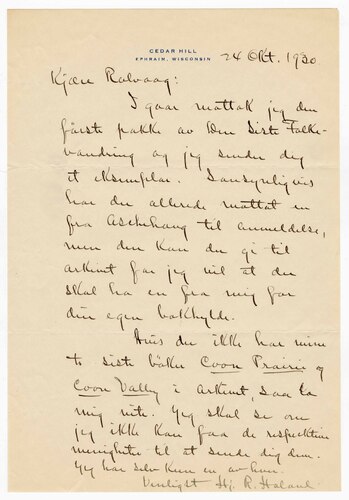 CEDAR HILL
EPHRAIM, WISCONSIN
24 Okt. 1930
Kjære Rolvaag:
I gaar mottok jeg den
første pakke av Den Siste Folke-
vandring og jeg sender dig
et eksemplar. Sansynligvis
har du allerede mottat en
fra Aschehoug til anmeldelse,
men den kan du gi til
arkivet for jeg vil at du
skal ha en fra mig for
din egen bokhylde.
Hvis du ikke har mine
to siste bøker Coon Prairie og
Coon Vally i arkivet, saa la
mig vite. Jeg skal se om
jeg ikke kan faa de respektive
menigheter til at sende dig dem.
Jeg har selv kun en av hver.
Venligst Hj. R. Holand